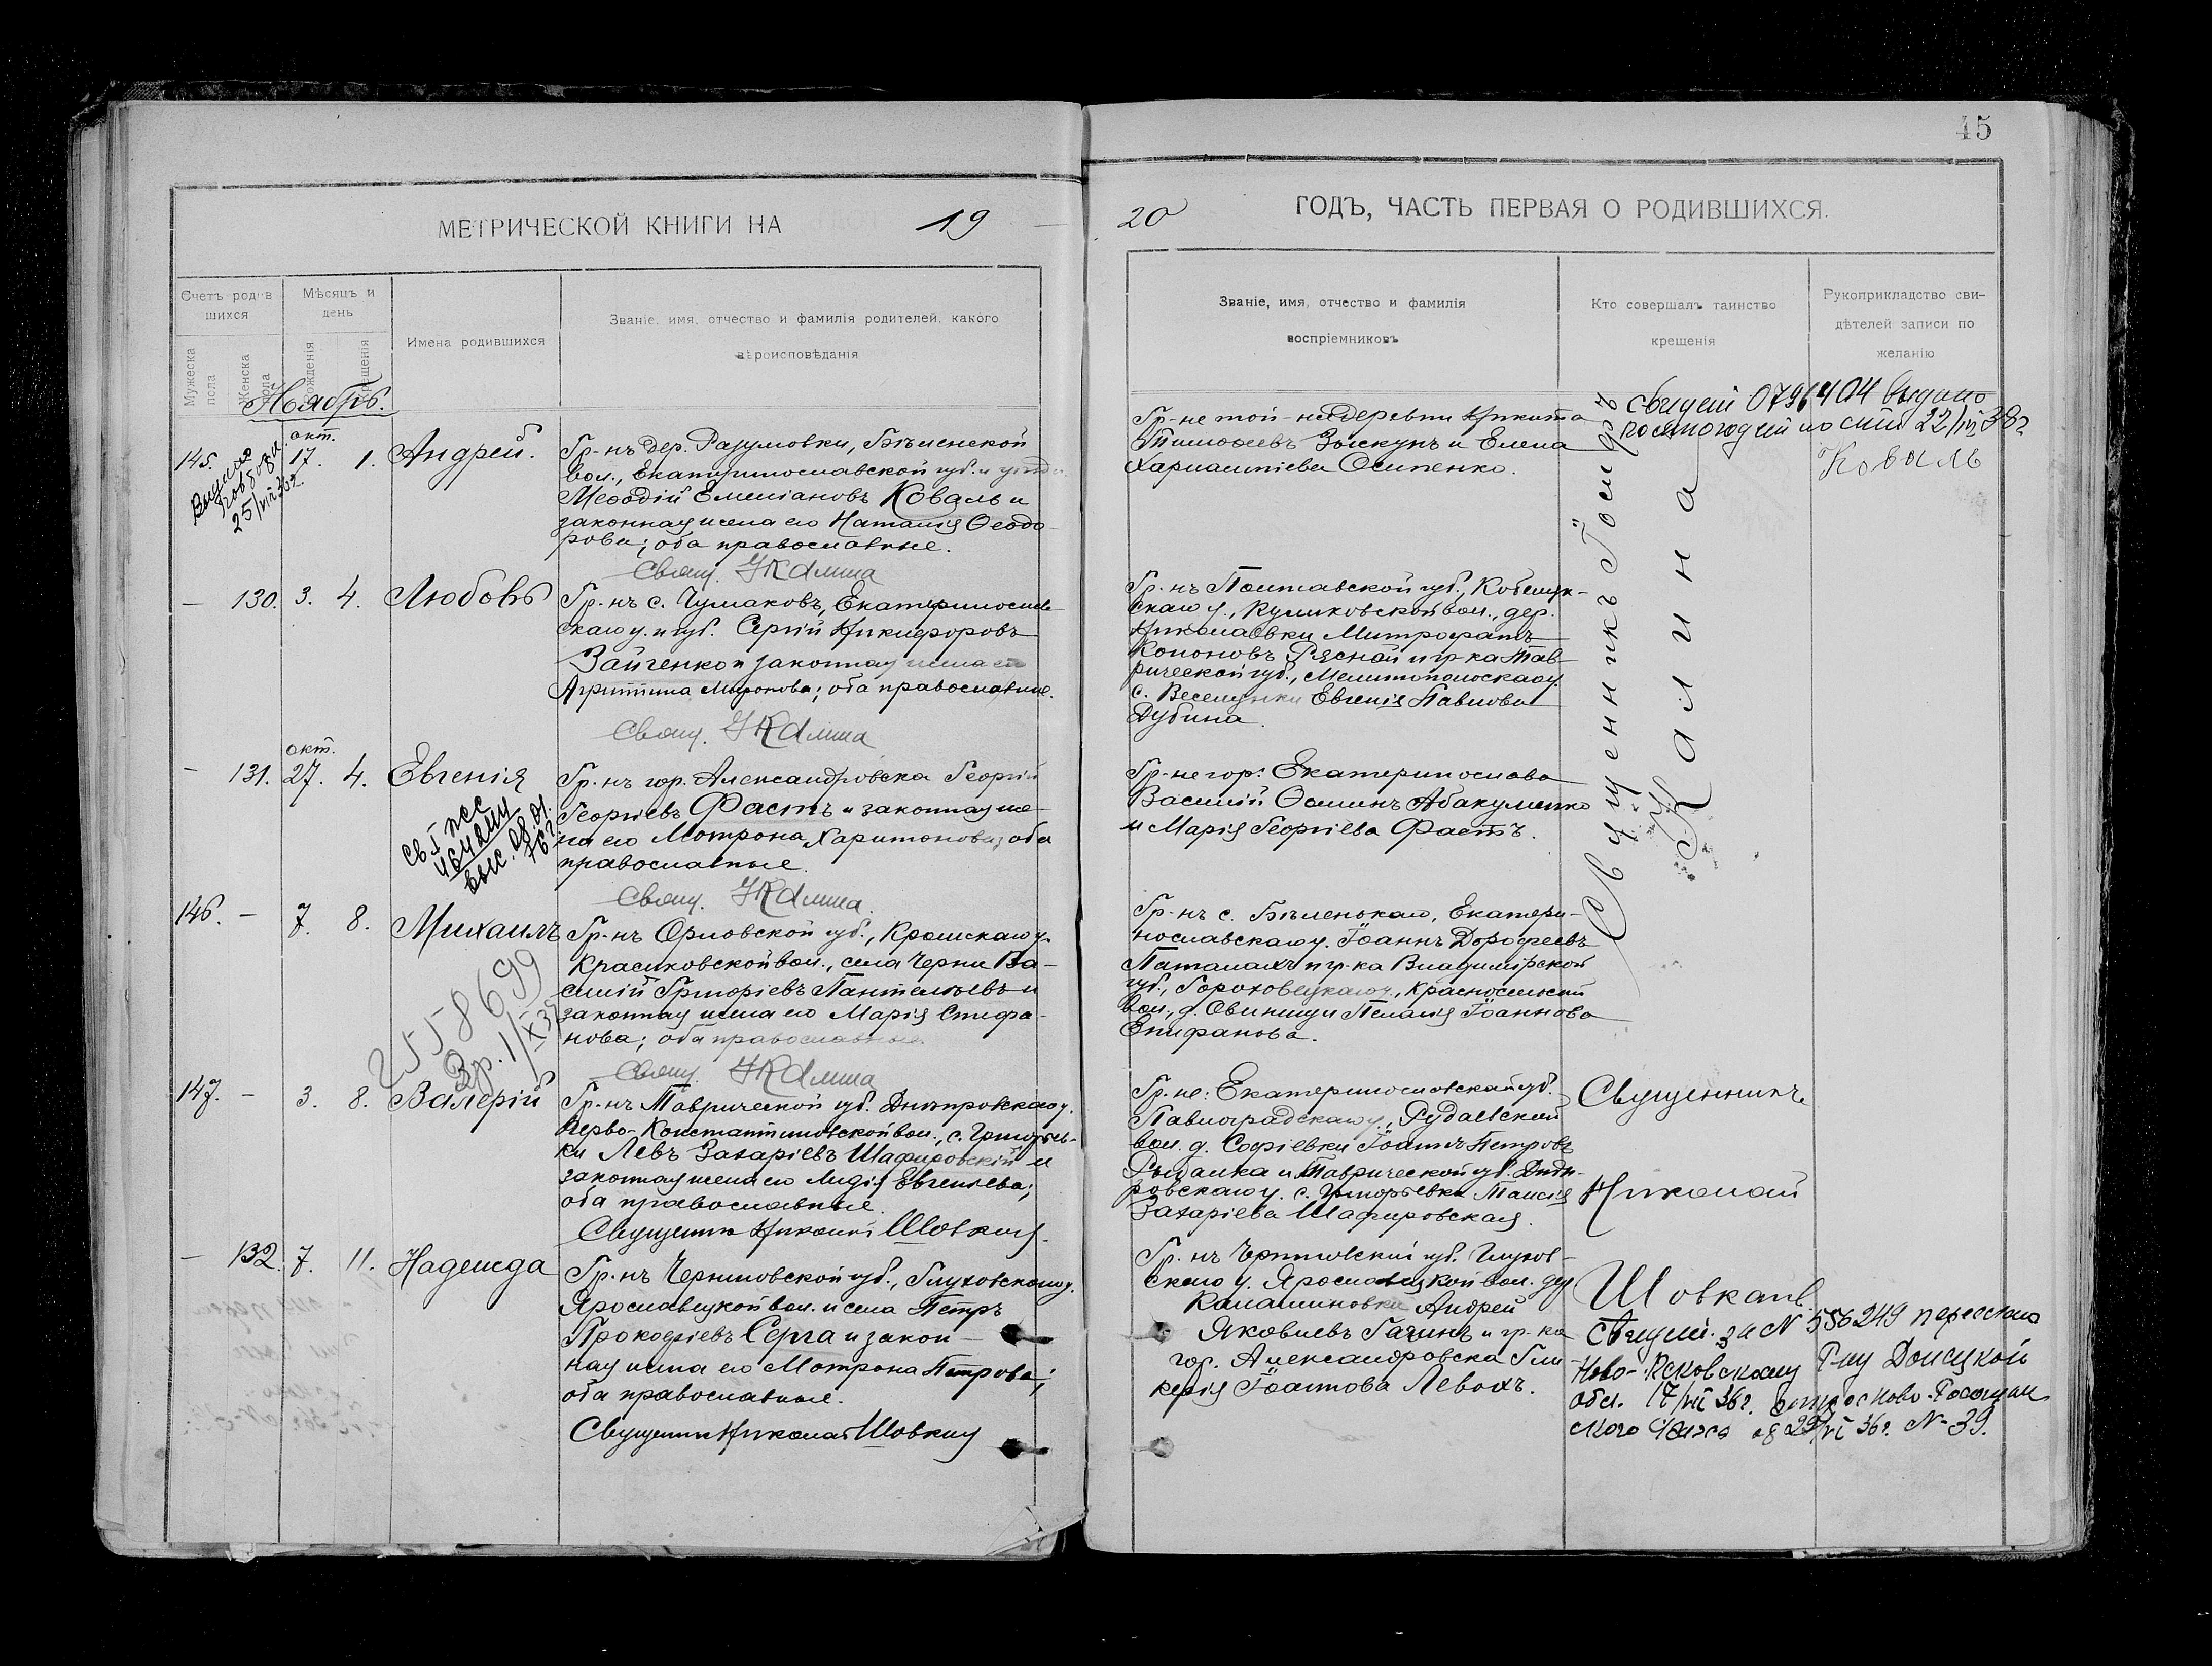 45
МЕТРИЧЕСКОЙ КНИГИ НА 19
20 ГОДЪ, ЧАСТЬ ПЕРВАЯ О РОДИВШИХСЯ.
Счетъ родив
шихся
Мужеска пола
Женска пола
Мѣсяцъ и
день
рожденія
крещенія
Имена родившихся
Званіе, имя, отчество и фамилія родителей, какого
вѣроисповѣданія
Званіе, имя, отчество и фамилія
воспріемниковъ
Кто совершалъ таинство
крещенія
Рукоприкладство сви-
дѣтелей записи по
желанію
Ноябрь.
145.
окт.
17. 1. Андрей.
25/VII 36г.
Гр-нъ дер. Разумовки, Бѣленской
вол., Екатеринославской губ. и уѣзда
Меѳодій Емеліановъ Коваль и
законная жена его Наталія Ѳеодо-
рова; оба православные.
Свящ. Н Калина
Гр-не той-же деревни Никита
Тимоѳеевъ Зыскунъ и Елена
Харлампіева Осипенко.
Священникъ
Калина
0796404 выдано
22/III 38г
Коваль
— 130. 3. 4. Любовь
Гр-нъ с. Чумаковъ, Екатеринослав-
скаго у. и губ. Сергій Никифоровъ
Зайченко и законная жена его
Агриппина Миронова; оба православные.
Свящ. Н Калина
Гр-нъ Полтавской губ., Кобеляк-
скаго у., Куликовской вол., дер.
Николаевки Митрофанъ
Кононовъ Рясной и гр-ка Тав-
рической губ., Мелитопольскаго у.
с. Веселянки Евгенія Павлова
Дубина.
— 131.
окт.
27. 4. Евгенія
Гр-нъ гор. Александровска Георгій
Георгіевъ Фастъ и законная же-
на его Мотрона Харитонова; оба
православные.
Свящ. Н Калина.
Гр-не гор. Екатеринослава
Василій Ѳоминъ Абакуменко
и Марія Георгіева Фастъ.
146. — 7. 8. Михаилъ
Гр-нъ Орловской губ., Кромскаго у.
Красиковской вол., села Черни Ва-
силій Григоріевъ Пантелѣевъ и
законная жена его Марія Стефа-
нова; оба православные.
Свящ. Н Калина
Гр-нъ с. Бѣленькаго, Екатери-
нославскаго у. Іоаннъ Дорофеевъ
Паталахъ и гр-ка Владимірской
губ., Гороховецкаго у., Красносельской
вол., д. Овинищи Пелагія Іоаннова
Епифанова.
147. — 3. 8. Валерій
Гр-нъ Таврической губ. Днѣпровскаго у.
Перво-Константиновской вол., с. Григорьев-
ки Левъ Захаріевъ Шафировскій и
законная жена его Лидія Евгеніева;
оба православные.
Священникъ Николай Шовкань
Гр-не: Екатеринославской губ.
Павлоградскаго у., Рудаевской
вол. д. Софіевки Іоаннъ Петровъ
и Таврической губ. Днѣп-
ровскаго у. с. Григорьевки Таисія
Захаріева Шафировская.
Священникъ
Николай
Шовкань
— 132. 7. 11. Надежда
Гр-нъ Черниговской губ., Глуховскаго у.
Ярославецкой вол. и села Петръ
Прокофіевъ Серга и закон-
ная жена его Мотрона Петрова;
оба православные.
Священникъ Николай Шовкань
Гр-нъ Черниговской губ. Глухов-
скаго у. Ярославецкой вол. дер.
Калашиновки Андрей
Яковлевъ Гагинъ и гр-ка
гор. Александровска Гли-
керія Іоаннова Левохъ.
за N 556249 переслано
Ново-Псковскому Р-ну Донецкой
обл. 17/VII 36г.
29/VI 36г. N-39.